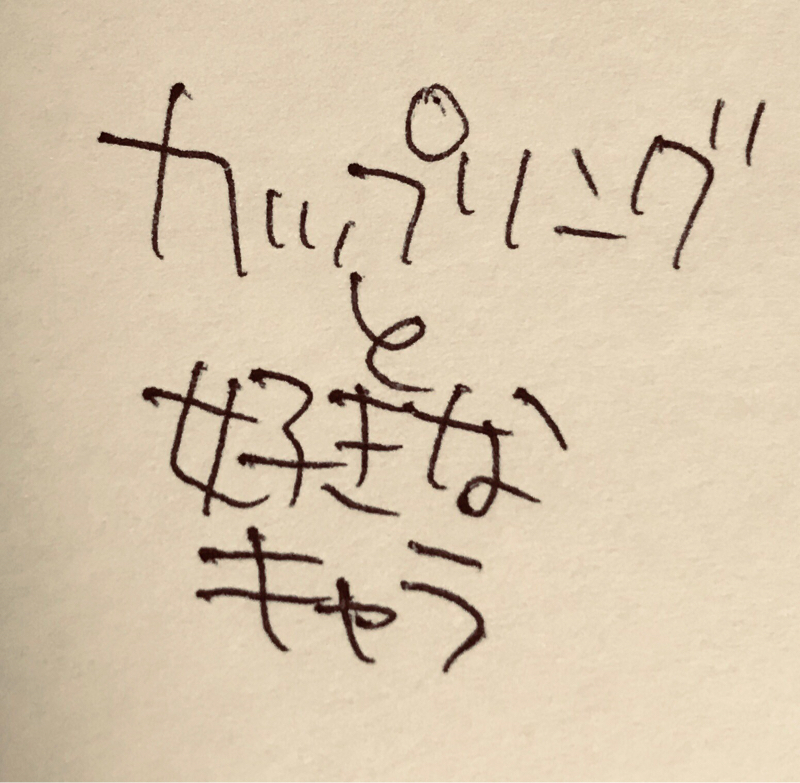 カップリング
と
好きな
キャラ